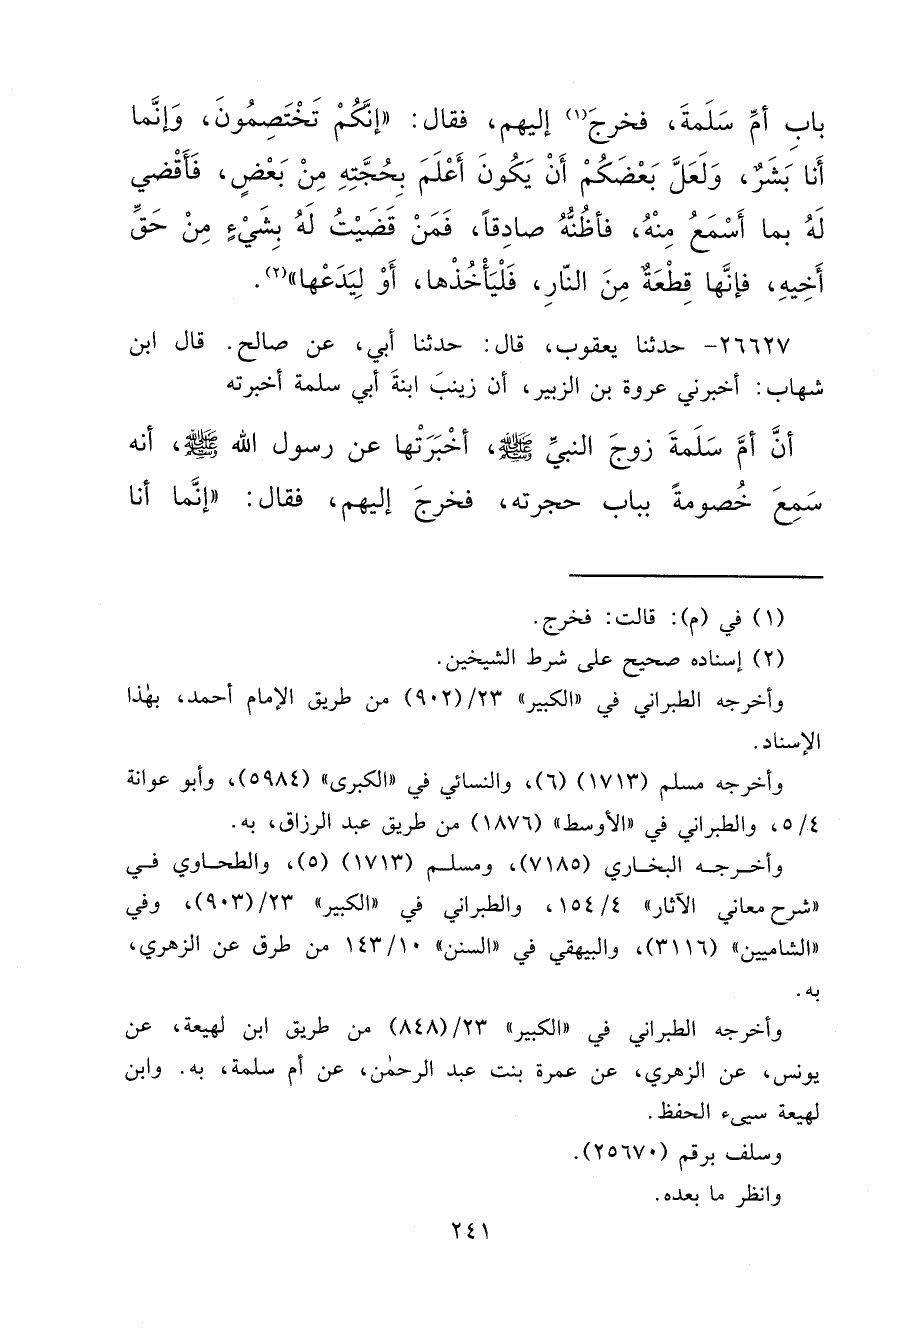 بابِ أمِّ سَلَمةَ، فخرجَ(١) إليهم، فقال: «إنَّكُمْ تَخْتَصِمُونَ، وَإنَّما
أنا بَشَرٌ، وَلَعَلَّ بَعْضَكُمْ أنْ يَكُونَ أعْلَمَ بِحُجَّتِهِ مِنْ بَعْضٍ، فَأَقْضي
لَهُ بما أَسْمَعُ مِنْهُ، فأظُنُّهُ صادِقاً، فَمَنْ قَضَيْتُ لَهُ بِشَيْءٍ مِنْ حَقِّ
أَخِيهِ، فإنَّها قِطْعَةٌ مِنَ النّارِ، فَلْيَأْخُذْها، أوْ لِيَدَعْها»(٢).
٢٦٦٢٧- حدثنا يعقوب، قال: حدثنا أبي، عن صالح. قال ابن
شهاب: أخبرني عروة بن الزبير، أن زينبَ ابنةَ أبي سلمة أخبرته
أنَّ أمَّ سَلَمةَ زوجَ النبيِّ ﷺ، أخْبَرَتْها عن رسول الله ﷺ، أنه
سَمِعَ خُصومةً بباب حجرته، فخرجَ إليهم، فقال: «إنَّما أنا
(١) في (م): قالت: فخرج.
(٢) إسناده صحيح على شرط الشيخين.
وأخرجه الطبراني في «الكبير» ٢٣/(٩٠٢) من طريق الإمام أحمد، بهٰذا
الإسناد.
وأخرجه مسلم (١٧١٣) (٦)، والنسائي في «الكبرى» (٥٩٨٤)، وأبو عوانة
٥/٤، والطبراني في «الأوسط» (١٨٧٦) من طريق عبد الرزاق، به.
وأخرجه البخاري (٧١٨٥)، ومسلم (١٧١٣) (٥)، والطحاوي في
«شرح معاني الآثار» ١٥٤/٤، والطبراني في «الكبير» ٢٣/(٩٠٣)، وفي
«الشاميين» (٣١١٦)، والبيهقي في «السنن» ١٤٣/١٠ من طرق عن الزهري،
به.
وأخرجه الطبراني في «الكبير» ٢٣/(٨٤٨) من طريق ابن لهيعة، عن
يونس، عن الزهري، عن عمرة بنت عبد الرحمٰن، عن أم سلمة، به. وابن
لهيعة سيىء الحفظ.
وسلف برقم (٢٥٦٧٠).
وانظر ما بعده.
٢٤١